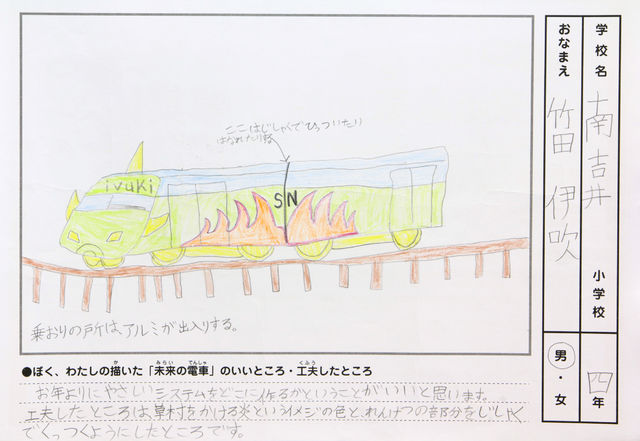 学校名
南吉井
小学校
四年
おなまえ
竹田 伊吹
男・女
ここはじしゃくでひっついたり
はなれたりする
ivuki
S N
乗おりの戸は、アルミが出入りする。
●ぼく、わたしの描いた「未来の電車」のいいところ・工夫したところ
お年よりにやさしいシステムをどこに作るかということがいいと思います。
工夫したところは、草村をかける炎というイメジの色と、れんけつの部分をじしゃく
でくっつくようにしたところです。